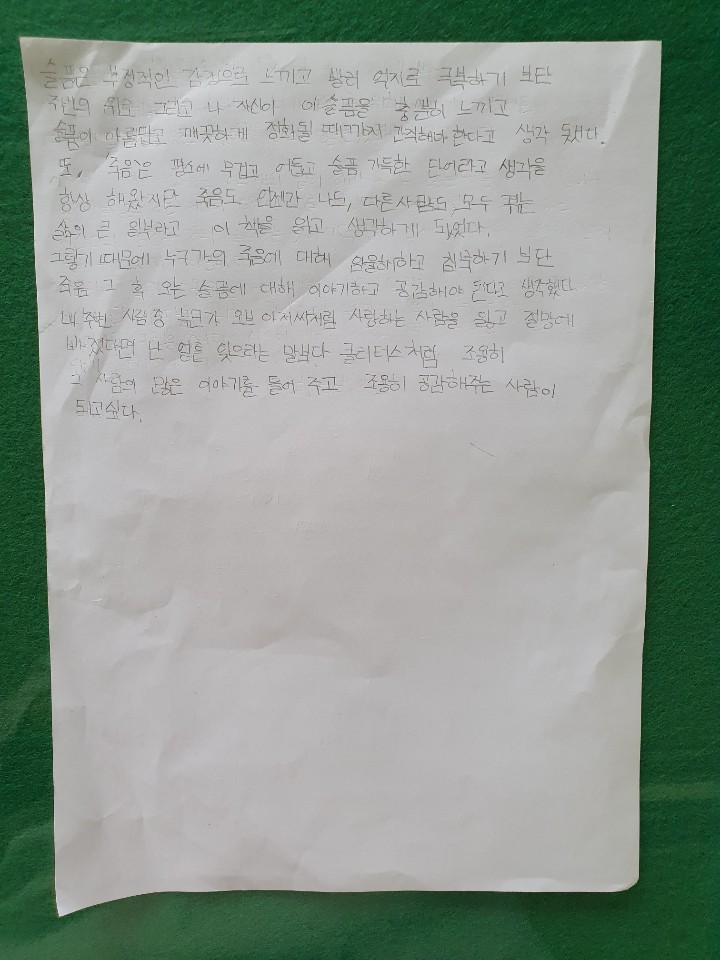 슬픔은 부정적인 감정으로 느끼고 빨리 억지로 극복하기 보단
주변의 위로 그리고 나 자신이 이 슬픔을 충분히 느끼고
슬픔이 아름답고 깨끗하게 정화될 때까지 간직해야 한다고 생각
또, '죽음'은 평소에 무겁고 어둡고 슬픔 가득한 단어라고 생각을
항상 해왔지만 죽음도 언젠간 나도, 다른사람도 모두 겪는
삶의 큰 일부라고 이 책을 읽고 생각하게 되었다.
그렇기 때문에 누군가의 죽음에 대해 우울해하고 침묵하기 보단
죽음 그 후 오는 슬픔에 대해 이야기하고 공감해야 된다고 생각했다
내 주변 사람 중 누군가 오브 아저씨처럼 사랑하는 사람을 잃고 절망에
빠졌다면 난 얼른 잊으라는 말보다 클리터스처럼 조용히
그 사람의 많은 이야기를 들어 주고 조용히 공감해주는 사람이
되고싶다.